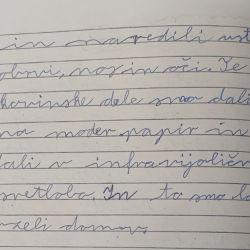 in naredili ust
obrvi, nos in oči. Te
kovinske dele smo dali
na moder papir in
dali v infravijoličn
svetlobo. In to smo la
vzeli domov.